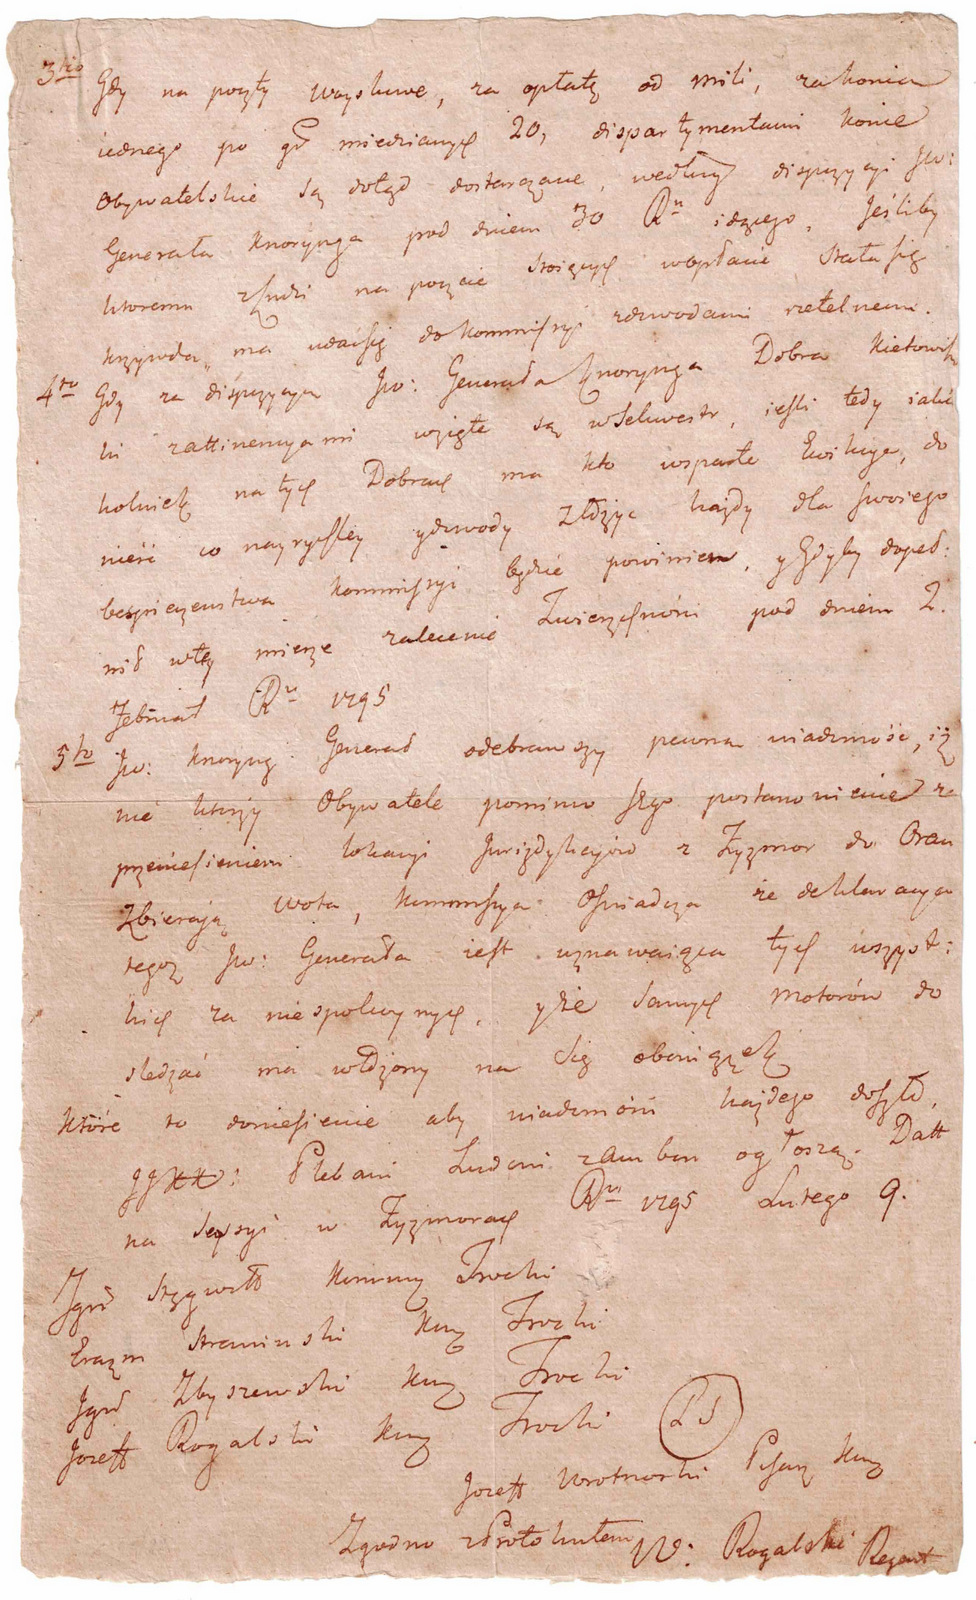 3tio Gdy na poczty woyskowe, za opłatą od mili, za konia
iednego po gr miedzianych 20, dispartymentami konie
Obywatelskie są dotąd dostarczane, według dispozycyi Jw:
Generała Knorynga pod dniem 30 Rn idącego, Jeśliby
ktoremu zludzi na poczcie stoiących wopłacie stała się
krzywda, ma udaćsię do Kommissyi zdowodami rzetelnemi.
4to Gdy za dispozycyą Jw: Generała Knorynga Dobra Kietowisz
ki zattinencyami wzięte są wsekwestr, ieśli tedy iakie
kolwiek na tych Dobrach ma kto wsparte Ewikcye, do
nieść co nayrychley ydowody złożyć każdy dla swoiego
bespieczenstwa Kommissyi będzie powinien, y Gdyby dopeł:
nił wtey mierze zalecenie Zwierzchności pod dniem 2.
Februar Rn 1795
5to Jw: Knoryng Generał odebrawszy pewną wiadomość, iż
nie ktorzy Obywatele pomimo Jego postanowienie ze
przeniesieniem lokacyi Jurizdykcyiów z Żyzmor do Oran
Zbieraią wota, Kommissya Oświadcza że deklaracya
tegoż Jw: Generała iest uznawaiąca tych wszyst:
kich za niespokoynych, yże samych Motorów do
sledzać ma włożony na się obowiązek
które to doniesienie aby wiadomości każdego doszło,
JJXX: Plebani Ludowi zambon ogłoszą. Datt
na Sessyi w Żyzmorach Rn 1795 Lutego 9.
Jgnł Kommz Trocki
Erazm Straminski Kmz Trocki
Jgnł Zbyszewski Kmz Trocki
Jozeff Rogalski Kmz Trocki LS
Jozeff Wrotnowski Pisarz Kmz
Zgodno zProtokułem W: Rogalski Regent